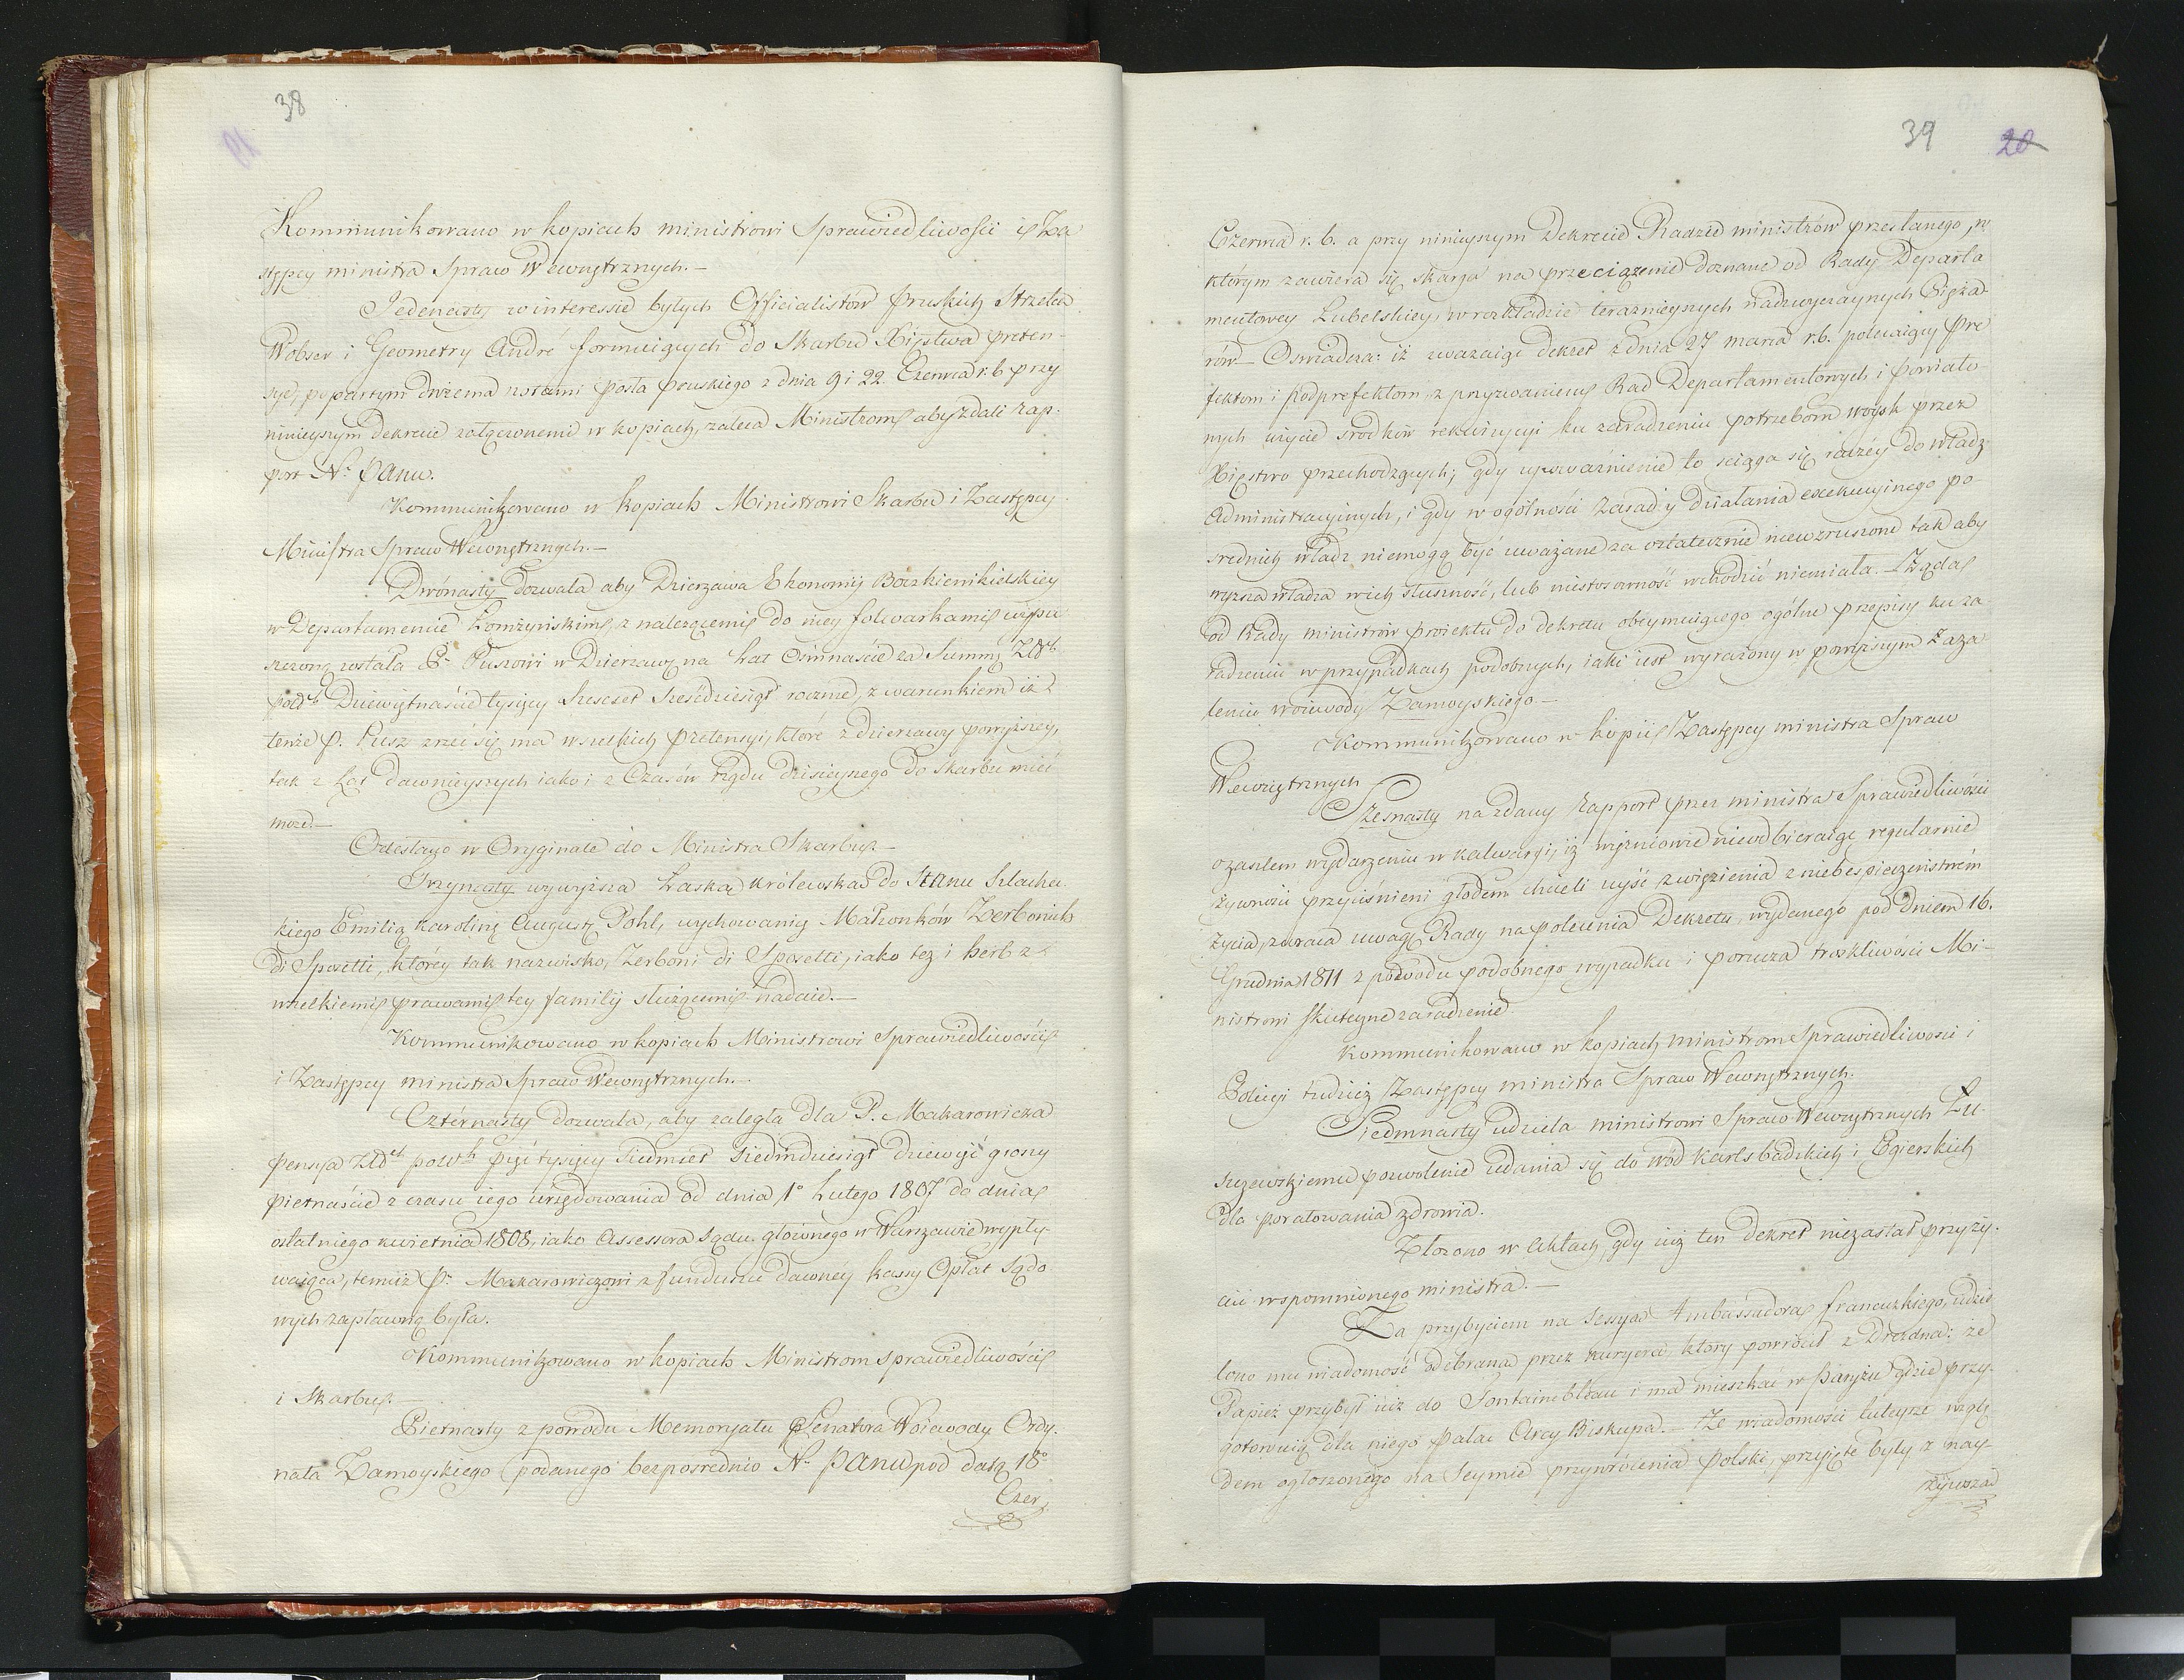 38
Kommunikowano w kopiach ministrowi Sprawiedliwości i Za
stępcy ministra Spraw Wewnętrznych.—
Jedenasty w interessie byłych Officialistów pruskich Strzelca
Wobser i Geometry André formuiących do Skarbu Xięstwa preten-
syę, popartym dwiema notami posła pruskiego z dnia 9 i 22. Czerwca r. b przy
ninieyszym dekrecie załączonemi w kopiach, zaleca Ministrom aby zdali rap-
port N. Panu.
Kommunikowano w kopiach Ministrowi Skarbu i Zastępcy
Ministra Spraw Wewnętrznych.—
Dwónasty dozwala aby Dzierzawa Ekonomij
w Departamencie Łomżyńskim, z nalezącemi do niey folwarkami wypu
szczoną została P. Puszowi w Dzierzawę na Lat Ośmnaście za Summę Złtch
polch Dziewiętnaście tysięcy Szescset Sześćdziesiąt rocznie, z warunkiem iż
tenże P. Pusz zrzec się ma wszelkich pretensyi, które z dzierzawy powyższey,
tak z Lat dawnieyszych iako i z Czasów rządu dzisieyszego do skarbu mieć
może.—
Odesłano w Oryginale do Ministra Skarbu.—
Trzynasty wywyższa Łaską Królewską do Stanu Szlachec-
kiego Emilią Karolinę Augustę Pohl, wychowanię Małżonków Zerbonich
di Sposetti, którey tak nazwisko, Zerboni di Sposetti, iako też i herb z
wszelkiemi prawami tey familij służącemi nadaie.—
Kommunikowano w kopiach Ministrowi Sprawiedliwości
i Zastępcy ministra Spraw Wewnętrznych.—
Cztérnasty dozwala, aby zaległa dla P. Makarowicza
pensya Złtch polch pięć tysięcy Siedmset Siedmdziesiąt dziewięć groszy
pietnaście z czasu iego urzędowania od dnia 1o Lutego 1807 do dnia
ostatniego kwietnia 1808, iako Assessora Sądu głównego w Warszawie wypły-
waiąca, temuż P. Makarowiczowi z funduszu dawney kassy Opłat Sądo-
wych zapłaconą była.
Kommunikowano w kopiach Ministrom Sprawiedliwości
i Skarbu.—
Pietnasty z powodu Memoryału Senatora Woiewody Ordy-
nata Zamoyskiego podanego bezposrednio N. Panu pod datą 18o
Czer
39 20
Czerwca r. b. a przy ninieyszym Dekrecie Radzie ministrów przesłanego, w
którym zawiera się skarga na przeciążenie doznane od Rady Departa
mentowey Lubelskiey, w rozkładzie teraznieyszych nadzwyczaynych Cięża-
rów. Oswiadcza: iż uwazaiąc dekret z dnia 27 marca r. b. polecaiący Pre
fektom i Podprefektom, z przyzwaniem Rad Departamentowych i Powiato-
wych użycie srodków rekwizycyi ku zaradzeniu potrzebom woysk przez
Xięstwo przechodzących; gdy upoważnienie to sciąga się raczéy do władz
Administracyinych, i gdy w ogólności Zasady działania exekucyinego po-
srednich władz niemogą być uważane za ostatecznie niewzruszone tak aby
wyzsza władza w ich słuszność, lub niestosowność wchodzić niemiała. Żąda
od Rady ministrów proiektu do dekretu obeymuiącego ogólne przepisy ku za
radzeniu w przypadkach podobnych, iaki iest wyrażony w powyższym Zaża
leniu woiewody Zamoyskiego.—
Kommunikowano w kopii Zastępcy ministra Spraw
Wewnętrznych
Szesnasty na zdany rapport przez ministra Sprawiedliwości
o zaszłem wydarzeniu w kalwaryi, iż więzniowie nieodbieraiąc regularnie
żywności przyciśnieni głodem chcieli wyść z więzienia z niebespieczeństwem
życia, zwraca uwagę Rady na polecenia Dekretu, wydanego pod Dniem 16.
Grudnia 1811 z powodu podobnego wypadku i porucza troskliwości Mi-
nistrowi skuteczne zaradzenie.
Kommunikowano w kopiach ministrom Sprawiedliwości i
Policyi tudzież Zastępcy ministra Spraw Wewnętrznych.
Siedmnasty udziela ministrowi Spraw Wewnętrznych Łu-
szczewskiemu pozwolenie udania się do wód Karlsbadzkich i Egierskich
dla poratowania zdrowia.
Złożono w Aktach, gdy iuż ten dekret niezastał przy ży-
ciu wspomnionego ministra.—
Za przybyciem na Sessyą Ambassadora francuzkiego, udzie
lono mu wiadomość odebraną przez kuryera, który powrócił z Drezdna: że
Papież przybył iuż do Fontainebleau i ma mieszkać w Paryżu gdzie przy-
gotowuią dla niego Pałac Arcy Biskupa.— Że wiadomości tuteysze wzglę
dem ogłoszonego na Seymie przywrócenia Polski, przyięte były z nay-